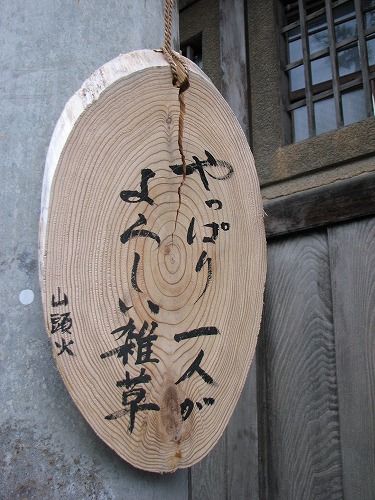 やっぱり一人が
よろしい雑草
山頭火